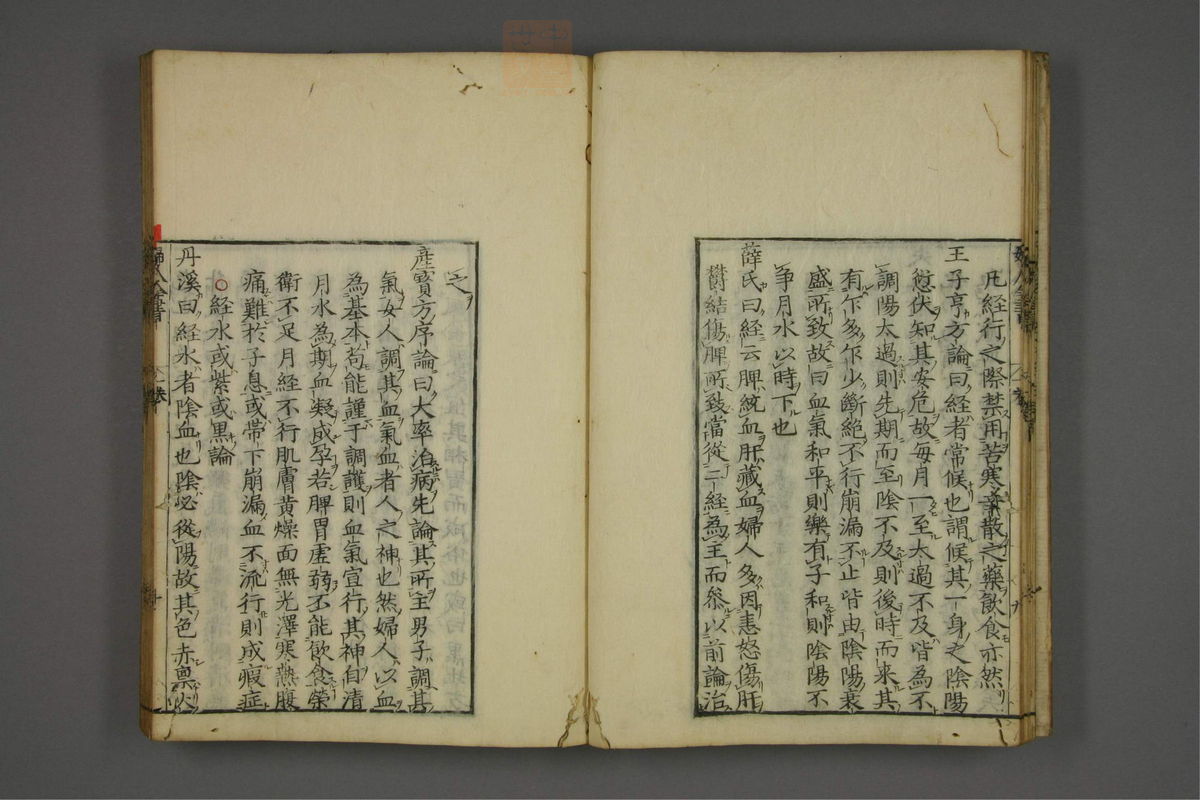 凡經行之際禁用苦寒辛散之藥飲食亦然
王子亨方論曰經者常候也謂候其一身之陰陽
愆伏知其安危故每月一至太過不及皆為不
調陽太過則先期而至陰不及則後時而來其
有乍多乍少斷絕不行崩漏不止皆由陰陽衰
盛所致故曰血氣和平則樂有子和則陰陽不
争月水以時下也
薛氏曰經云脾統血肝藏血婦人多因恚怒傷肝
欝結傷脾所致當從二經為主而叅以前論治
之
產寳方序論曰大率治病先論其所主男子調其
氣女人調其血氣血者人之神也然婦人以血
為基本苟能謹于調護則血氣宣行其神自清
月水為期血凝成孕若脾胃虛弱不能飲食榮
衛不足月經不行肌膚黄燥面無光澤寒熱腹
痛難於子息或帶下崩漏血不流行則成瘕症
○經水或紫或黒論
丹溪曰經水者陰血也陰必從陽故其色赤禀火